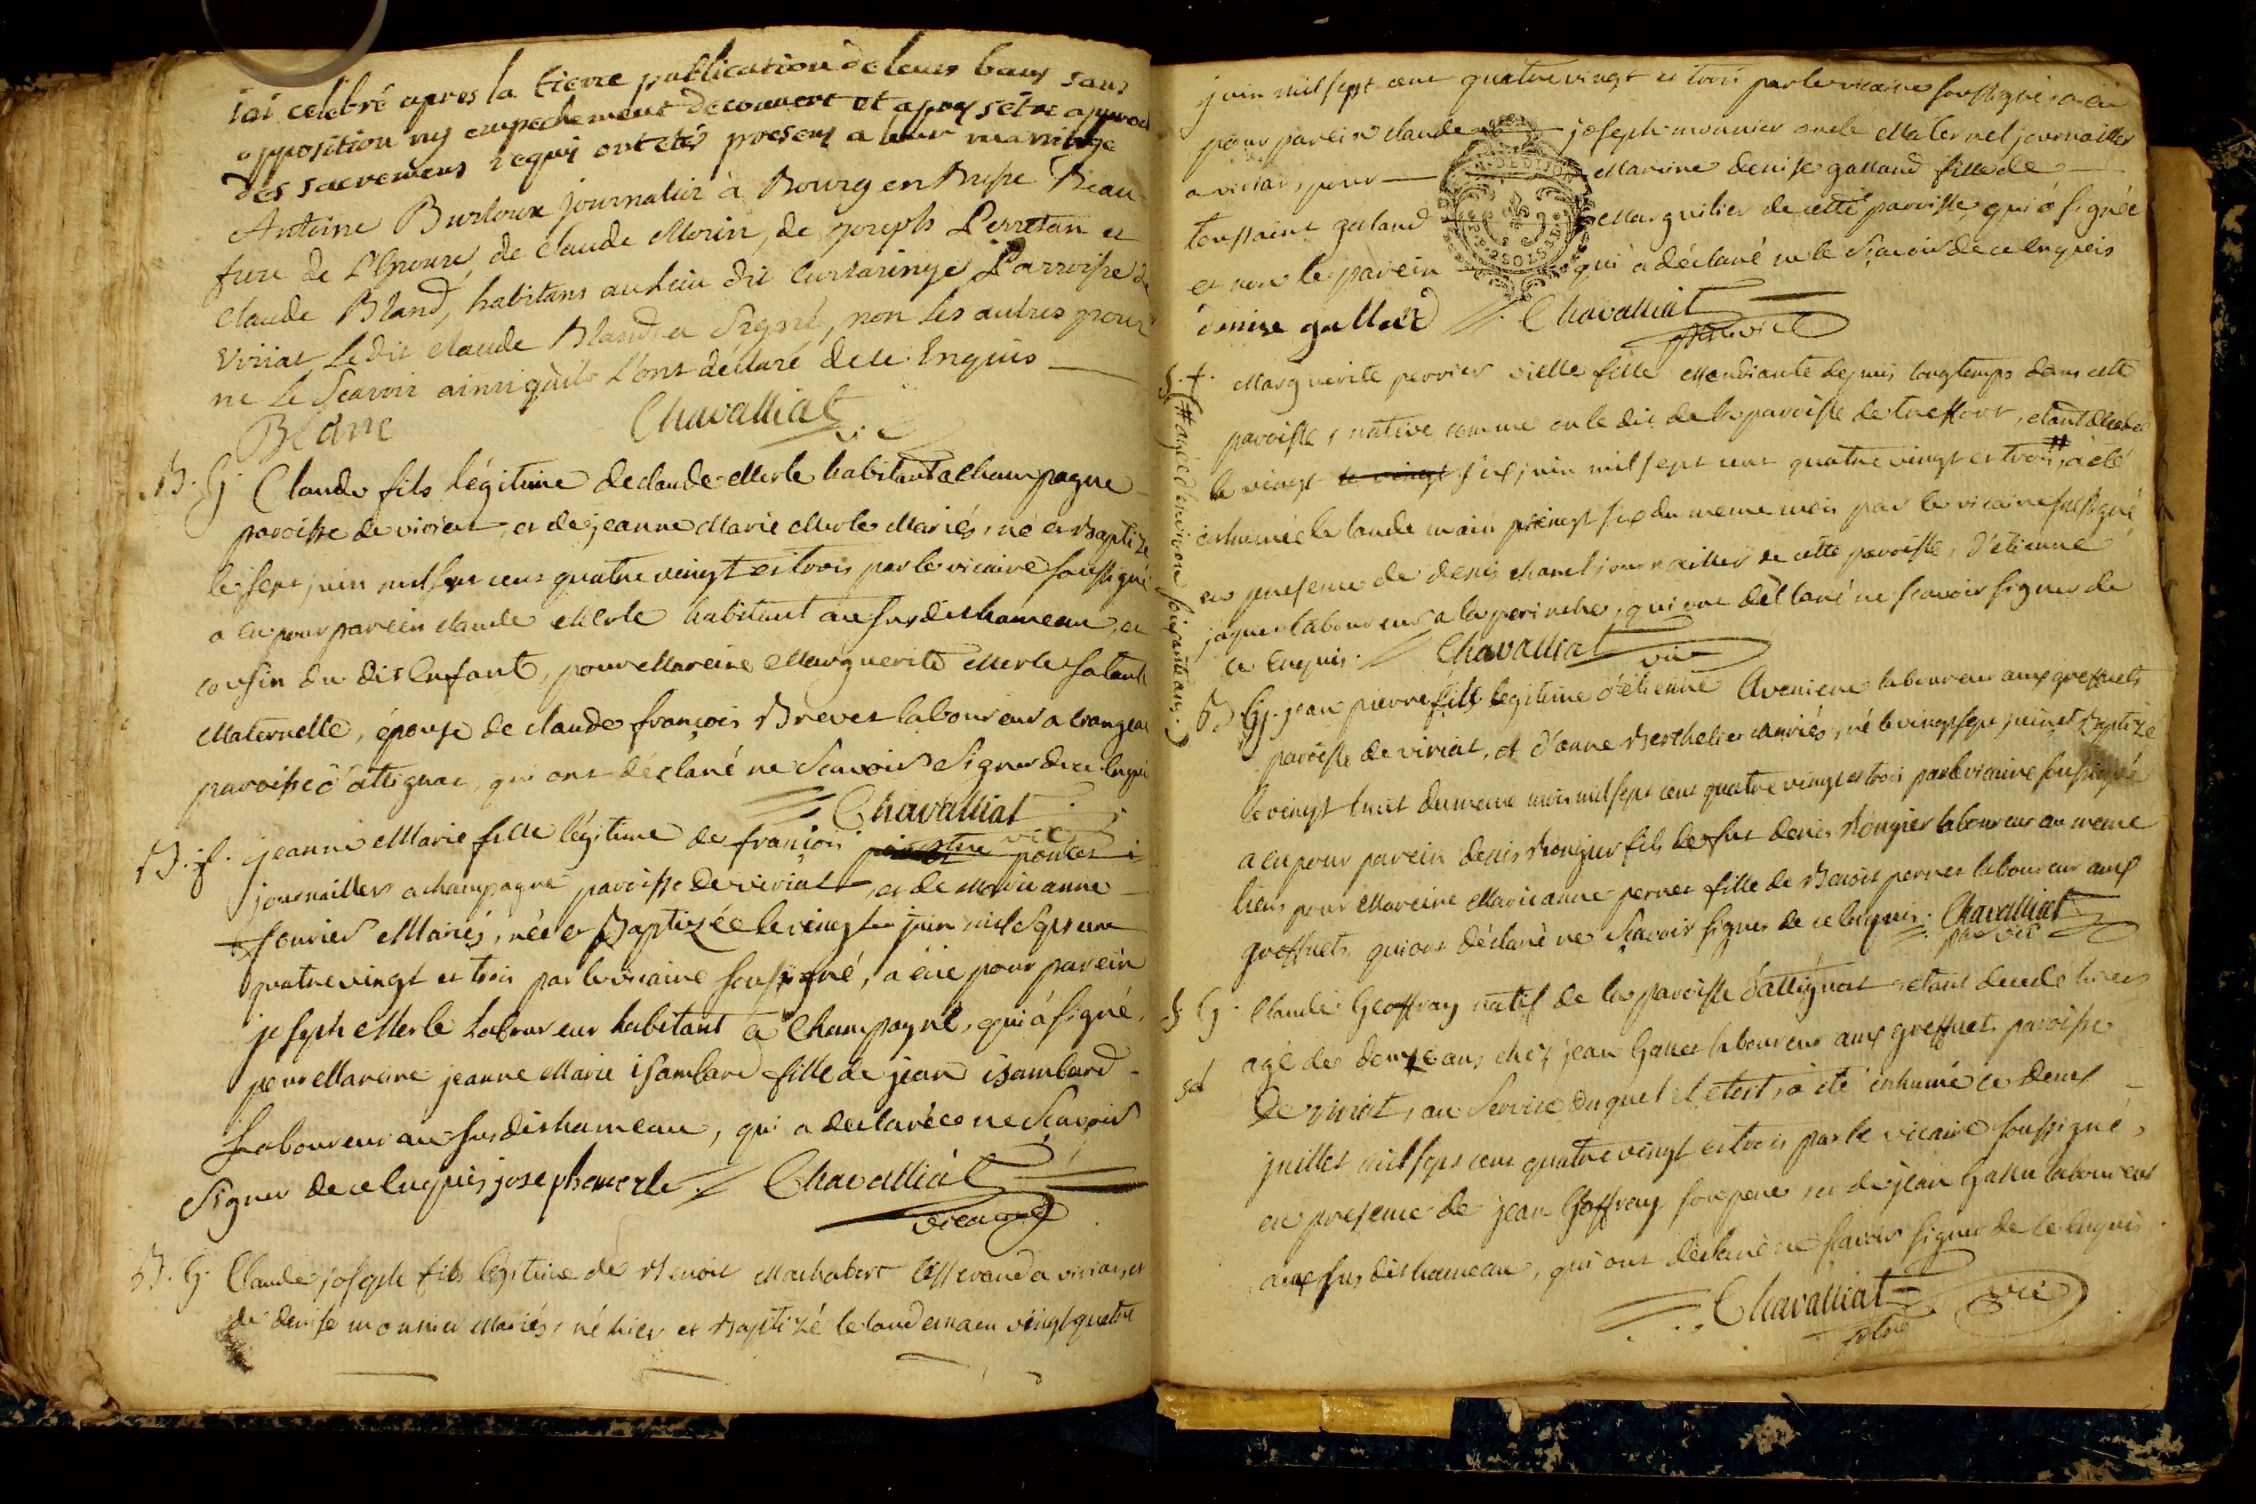 iai celebré apres la tierce publication de leurs bans sans
opposition ny empechement decouvert et apres sètre approché
des sacremens requis ont etés presens a leur marriage
Antoine Burloux journalier à Bourg en Brisse Beau
frere de L'Epouse de Claude Morin, de joseph Perretan et
Claude Bland, habitans au Lieu dit Curtaringe Parroisse de
Viriat Ledit Claude Bland a Signé, non les autres pour
ne le Scavoir ainsi qùils L'ont declaré de ce Enquis
Blanc Chavalliat vic
B. G Claude fils légitime de claude Merle habitant a Champagne
paroisse de viriat, et de jeanne Marie Merle Mariés, né et Baptizé
le sept juin mil sept cent quatre veingt et trois par le vicaire soussigné
a eu pour parein claude Merle habitant au susdit hameau, et
cousin du dit Enfant, pour Mareine Marguerite Merle sa tante
Maternelle, épouse de claude françois Brevet laboureur a
paroisse d'attignac, qui ont déclaré ne Scavoir Signer de ce Enquis
Chavalliat vic
B. f. jeanne Marie fille légitime de françois poncet
journaillier a champagne paroisse de viriat, et de Marie anne
fevrier Mariés, née et Baptizée le veingt juin mil Sept cent
quatre veingt et trois par le vicaire soussigné, a eue pour parein
joseph Merle Laboureur habitant a Champagne, qui a signé,
pour Mareine jeanne Marie isambard fille de jean isambard
Laboureur au susdit hameau, qui a declaréee ne Scavoir
Signer de ce Enquis joseph merle Chavalliat
vicaire
B. G. Claude joseph fils légitime de Benoit Machabert tisserand a viriat, et
de denise monnier Mariés, né hier et Baptizé le landemain veingt quatre
juin mil sept cent quatre veingt et trois par le vicaire soussigné, a eu
pour parein claude joseph monnier oncle Maternel journaillier
a viriat, pour Mareine denise galland fille de
toussaint galand Marguilier de cette paroisse, qui a signée
et non le parein qui a déclaré ne le Scavoir de ce enquis
denise galland Chavalliat
vic
S. f. Marguerite perrier vielle fille Mendiante depuis longtemps dans cette
paroisse, native comme on le dit de la paroisse de treffort, etant decedé
le veingt le veingt six juin mil sept cent quatre veingt et trois #, a été
inhumée le landemain veingt sep du meme mois par le vicaire soussigné
# agée d'environ soixante ans.
en presence de denis chanel journaillier de cette paroisse, d'etienne
joquet laboureur a la perinche, qui ont déclaré ne scavoir signer de
ce Enquis. Chavalliat vic
B. G. jean pierre fils legitime d'étienne Aveniere laboureur aux greffets
paroisse de viriat, et d'anne Berthelier mariés, né le veingt sept juin et Baptizé
le veingt huit du meme mois mil sept cent quatre veingt et trois par le vicaire soussigné
a eu pour parein denis Rongier fils de feu denis Rongier laboureur au meme
lieu, pour Mareine Marie anne pernet fille de Benoit pernet laboureur aux
greffets qui ont déclaré ne Scavoir signer de ce Enquis. Chavalliat
vic
S. G. Claude Geoffray natif de la paroisse d'attignat etant decedé hier
agé de douze ans chez jean Gallet laboureur aux greffets paroisse
De viriat, au Service duquel il etoit, a été inhumé ce deux
juillet mil sept cent quatre veingt et trois par le vicaire soussigné,
en presence de jean Geoffray son pere, et de jean Gallet laboureur
aux susdit hameau, qui ont déclaré ne scavoir signer de ce Enquis.
Chavalliat vic